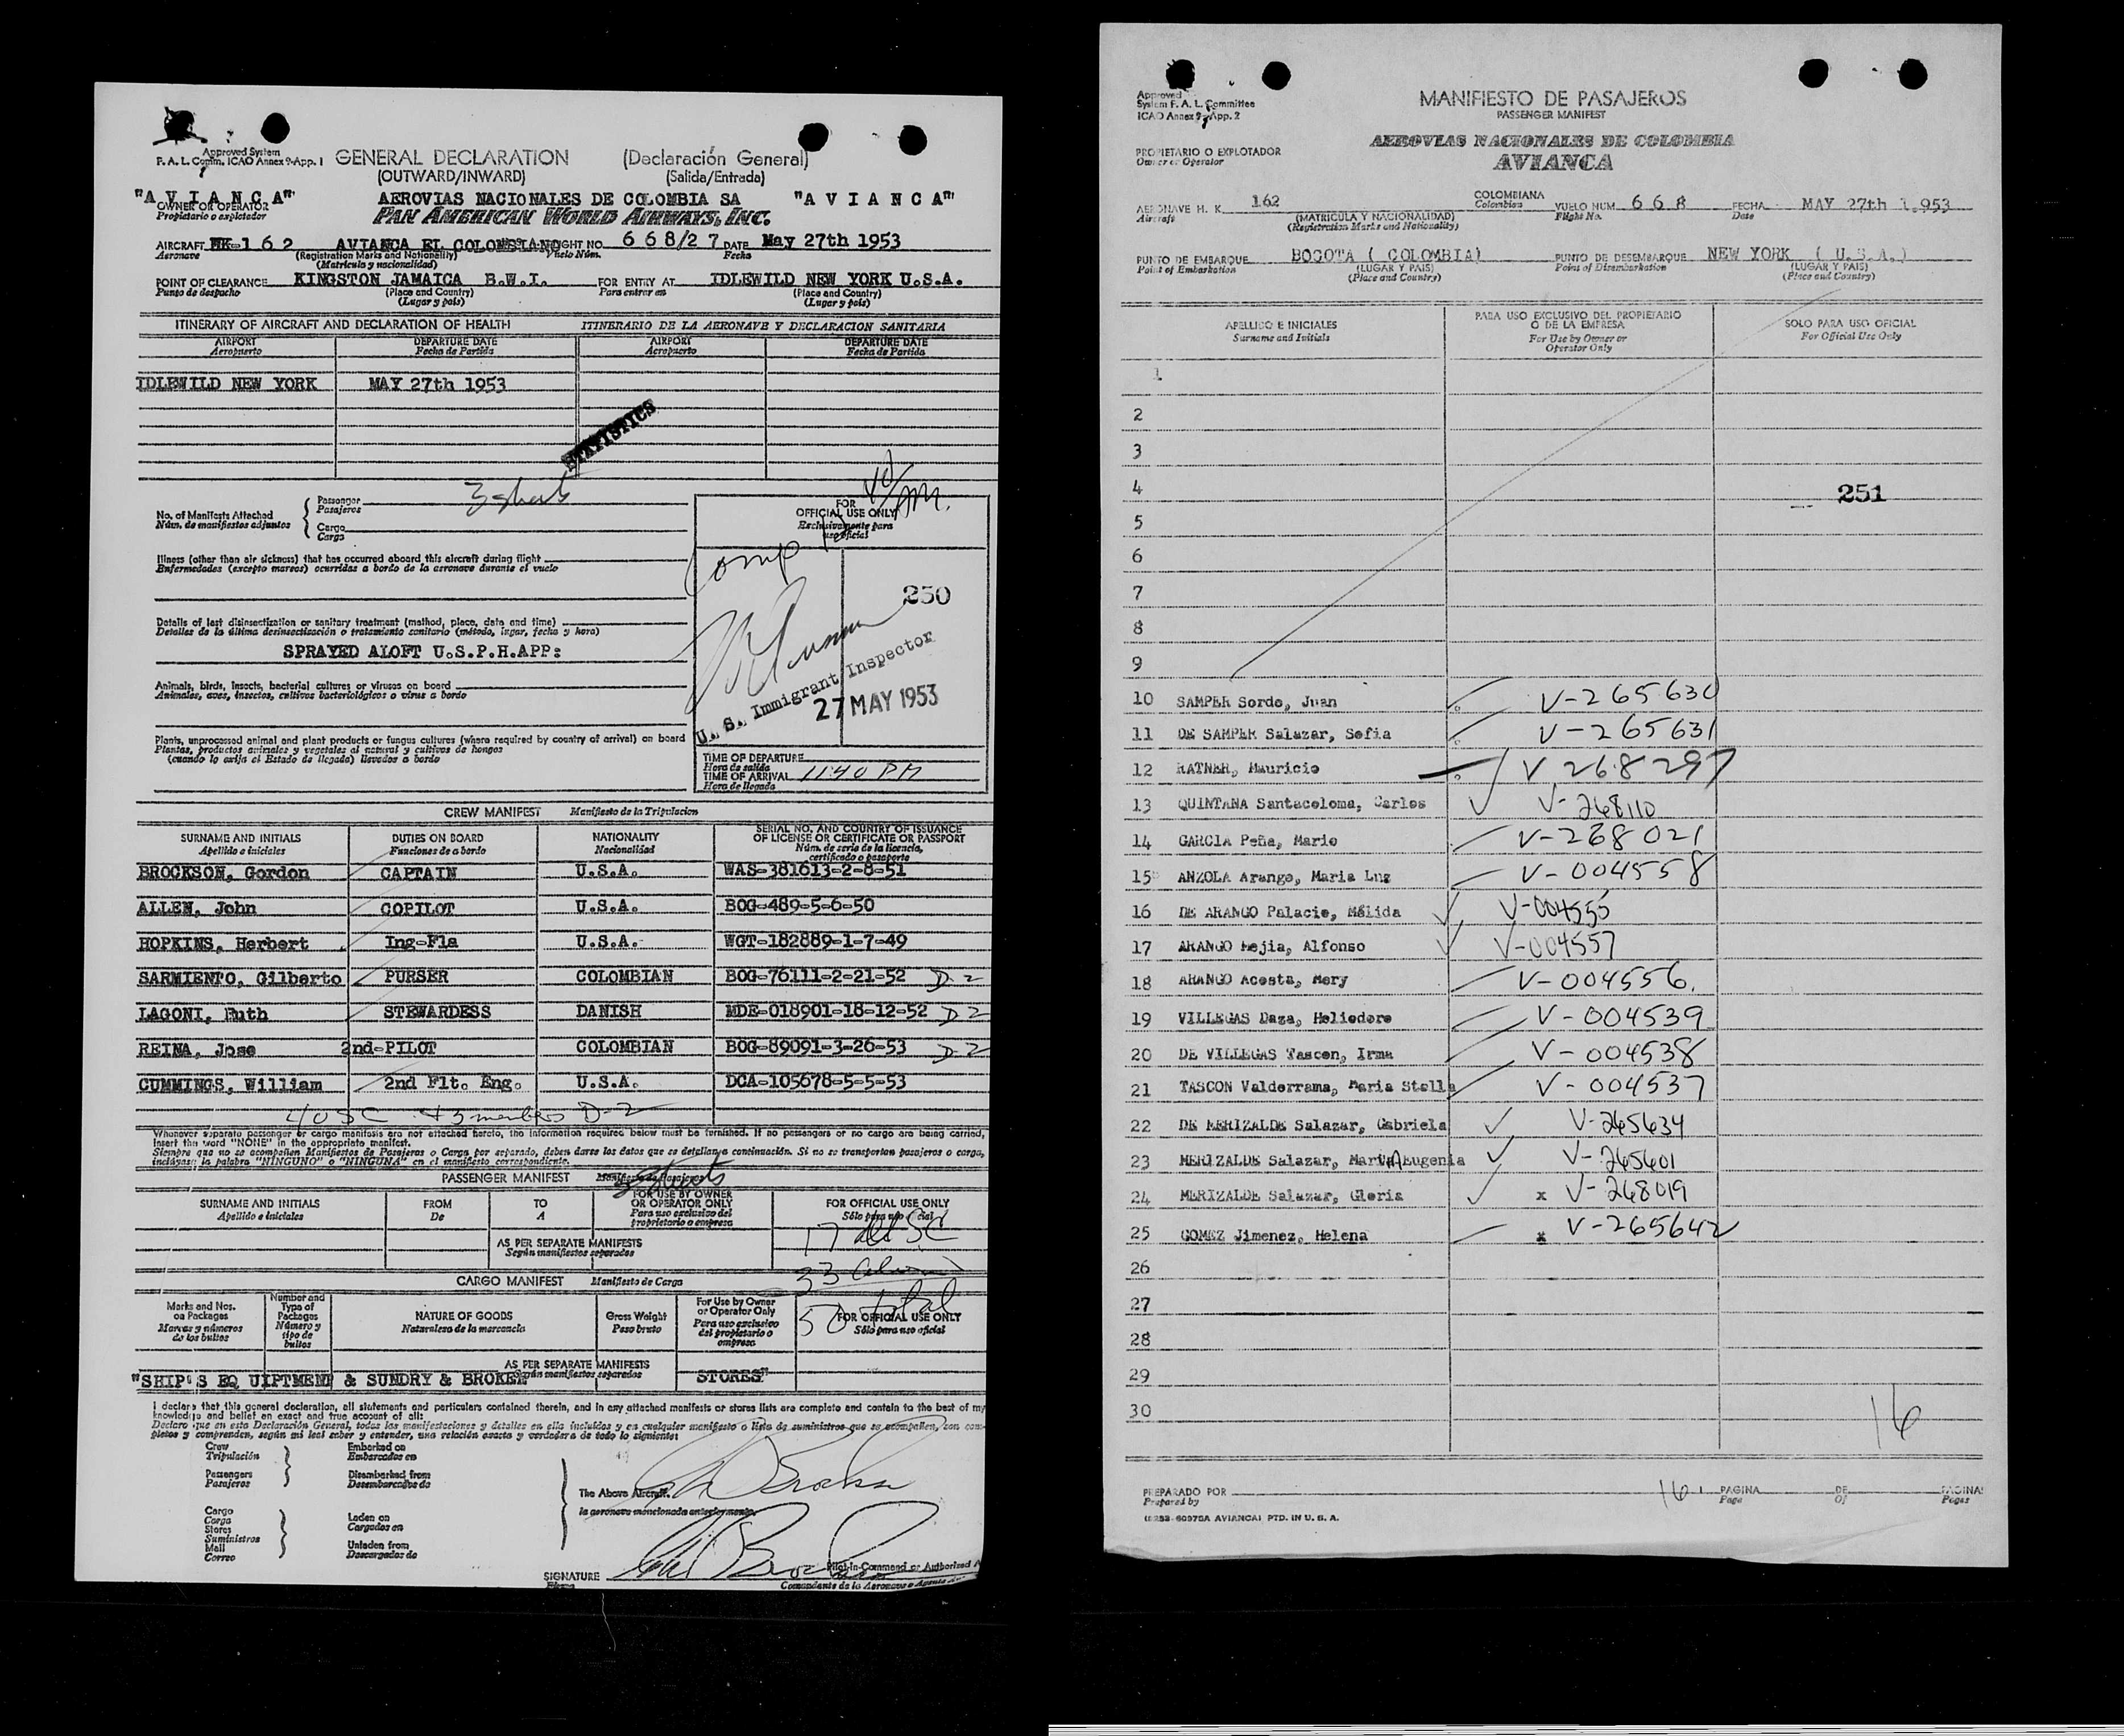 Approved System
F. A. L. Comm. ICAO Annex 9-App. 1
GENERAL DECLARATION (Declaración General)
(OUTWARD/INWARD) (Salida/Entrada)
"A V I A N C A" AEROVIAS NACIONALES DE COLOMBIA SA "A V I A N C A"
OWNER OR OPERATOR PAN AMERICAN WORLD AIRWAYS, INC.
Propietario o explotador
AIRCRAFT HK-1 6 2 AVIANCA EL COLOMBIANO FLIGHT NO. 6 6 8/2 7 DATE May 27th 1953
Aeronave (Registration Marks and Nationality) Vuelo Núm. Fecha
(Matrícula y nacionalidad)
POINT OF CLEARANCE KINGSTON JAMAICA B.W.I. FOR ENTRY AT IDLEWILD NEW YORK U.S.A.
Punto de despacho (Place and Country) Para entrar en (Place and Country)
(Lugar y país) (Lugar y país)
ITINERARY OF AIRCRAFT AND DECLARATION OF HEALTH ITINERARIO DE LA AERONAVE Y DECLARACION SANITARIA
AIRPORT DEPARTURE DATE AIRPORT DEPARTURE DATE
Aeropuerto Fecha de Partida Aeropuerto Fecha de Partida
IDLEWILD NEW YORK MAY 27th 1953
STATISTICS
No. of Manifests Attached Passenger 3 sheets
Núm. de manifiestos adjuntos Pasajeros
Cargo
Carga
FOR
OFFICIAL USE ONLY
Exclusivamente para
uso oficial
Illness (other than air sickness) that has occurred aboard this aircraft during flight
Enfermedades (excepto mareos) ocurridas a bordo de la aeronave durante el vuelo
Comp
250
Details of last disinsectization or sanitary treatment (method, place, date and time)
Detalles de la última desinsectización o tratamiento sanitario (método, lugar, fecha y hora)
SPRAYED ALOFT U.S.P.H.APP:
Animals, birds, insects, bacterial cultures or viruses on board
Animales, aves, insectos, cultivos bacteriológicos o virus a bordo
U. S. Immigrant Inspector
27 MAY 1953
Plants, unprocessed animal and plant products or fungus cultures (where required by country of arrival) on board
Plantas, productos animales y vegetales al natural y cultivos de hongos
(cuando lo exija el Estado de llegada) llevados a bordo
TIME OF DEPARTURE
Hora de salida
TIME OF ARRIVAL 11:40 PM
Hora de llegada
CREW MANIFEST Manifiesto de la Tripulacion
SURNAME AND INITIALS DUTIES ON BOARD NATIONALITY SERIAL NO. AND COUNTRY OF ISSUANCE OF LICENSE OR CERTIFICATE OR PASSPORT
Apellido e iniciales Funciones de a bordo Nacionalidad Núm. de serie de la licencia, certificado o pasaporte
BROCKSON, Gordon CAPTAIN U.S.A. WAS-381613-2-8-51
ALLEN, John COPILOT U.S.A. BOG-489-5-6-50
HOPKINS, Herbert Ing-Fla U.S.A. WGT-182889-1-7-49
SARMIENTO, Gilberto PURSER COLOMBIAN BOG-76111-2-21-52 D-2
LAGONI, Ruth STEWARDESS DANISH MDE-018901-18-12-52 D-2
REINA, Jose 2nd-PILOT COLOMBIAN BOG-89091-3-26-53 D-2
CUMMINGS, William 2nd Flt. Eng. U.S.A. DCA-105678-5-5-53
4 USC + 3 members D-2
Whenever separate passenger or cargo manifests are not attached hereto, the information required below must be furnished. If no passengers or no cargo are being carried,
insert the word "NONE" in the appropriate manifest.
Siempre que no se acompañen Manifiestos de Pasajeros o Carga por separado, deben darse los datos que se detallan a continuación. Si no se transportan pasajeros o carga,
inclúyase la palabra "NINGUNO" o "NINGUNA" en el manifiesto correspondiente.
PASSENGER MANIFEST Manifiesto de Pasajeros
3 sheets
SURNAME AND INITIALS FROM TO FOR USE BY OWNER OR OPERATOR ONLY FOR OFFICIAL USE ONLY
Apellido e iniciales De A Para uso exclusivo del propietario o empresa Sólo para uso oficial
AS PER SEPARATE MANIFESTS
Según manifiestos separados
17 all SC
33 aliens
50 total
CARGO MANIFEST Manifiesto de Carga
Marks and Nos. on Packages Number and Type of Packages NATURE OF GOODS Gross Weight For Use by Owner or Operator Only FOR OFFICIAL USE ONLY
Marcas y números de los bultos Número y tipo de bultos Naturaleza de la mercancía Peso bruto Para uso exclusivo del propietario o empresa Sólo para uso oficial
AS PER SEPARATE MANIFESTS
Según manifiestos separados
"SHIP'S EQ UIPTMENT & SUNDRY & BROKEN STORES"
I declare that this general declaration, all statements and particulars contained therein, and in any attached manifests or stores lists are complete and contain to the best of my
knowledge and belief an exact and true account of all:
Declaro que en esta Declaración General, todas las manifestaciones y detalles en ella incluídos y en cualquier manifiesto o lista de suministros que se acompañen, son com-
pletos y comprenden, según mi leal saber y entender, una relación exacta y verdadera de todo lo siguiente:
Crew Embarked on
Tripulación Embarcados en
Passengers Disembarked from
Pasajeros Desembarcados de
The Above Aircraft.
la aeronave mencionada anteriormente.
Cargo Laden on
Carga Cargados en
Stores
Suministros
Mail Unladen from
Correo Descargados de
SIGNATURE
Firma
Pilot-in-Command or Authorized
Comandante de la Aeronave o Agente
Approved
System F. A. L. Committee
ICAO Annex 9-App. 2
MANIFIESTO DE PASAJEROS
PASSENGER MANIFEST
AEROVIAS NACIONALES DE COLOMBIA
AVIANCA
PROPIETARIO O EXPLOTADOR
Owner or Operator
AERONAVE H. K. 162 COLOMBIANA VUELO NUM. 6 6 8 FECHA MAY 27th 1.953
Aircraft (MATRICULA Y NACIONALIDAD) Colombian Flight No. Date
(Registration Marks and Nationality)
PUNTO DE EMBARQUE BOGOTA ( COLOMBIA) PUNTO DE DESEMBARQUE NEW YORK ( U.S.A.)
Point of Embarkation (LUGAR Y PAIS) Point of Disembarkation (LUGAR Y PAIS)
(Place and Country) (Place and Country)
APELLIDO E INICIALES PARA USO EXCLUSIVO DEL PROPIETARIO O DE LA EMPRESA SOLO PARA USO OFICIAL
Surname and Initials For Use by Owner or Operator Only For Official Use Only
1
2
3
4 251
5
6
7
8
9
10 SAMPER Sordo, Juan V-265630
11 DE SAMPER Salazar, Sofia V-265631
12 RATNER, Mauricio V 268297
13 QUINTANA Santacoloma, Carlos V-268110
14 GARCIA Peña, Mario V-268021
15 ANZOLA Arango, Maria Luz V-004558
16 DE ARANGO Palacio, Mélida V-004555
17 ARANGO Mejia, Alfonso V-004557
18 ARANGO Acosta, Mery V-004556.
19 VILLEGAS Daza, Heliodoro V-004539
20 DE VILLEGAS Tascon, Irma V-004538
21 TASCON Valderrama, Maria Stella V-004537
22 DE MERIZALDE Salazar, Gabriela V-265634
23 MERIZALDE Salazar, Maria Eugenia V-265601
24 MERIZALDE Salazar, Gloria x V-268019
25 GOMEZ Jimenez, Helena x V-265642
26
27
28
29
30 16
PREPARADO POR 16 PAGINA DE PAGINAS
Prepared by Page Of Pages
(6253-60975A AVIANCA) PTD. IN U. S. A.